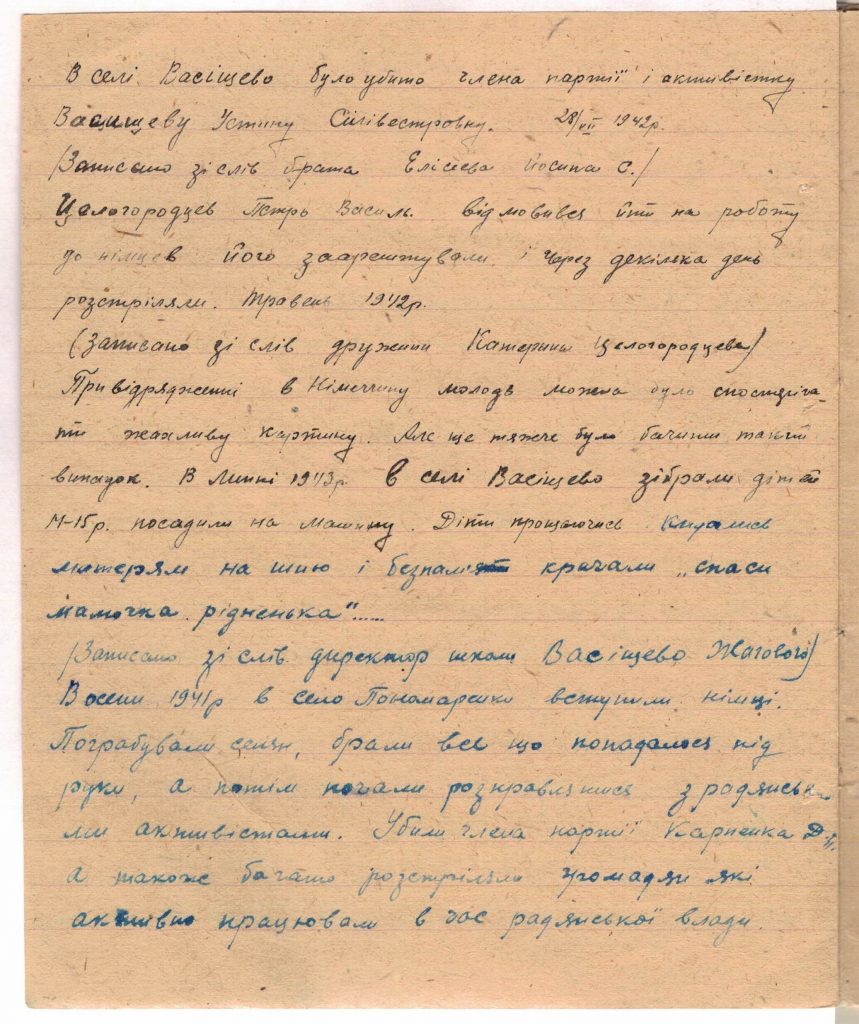 В селі Васіщево було убито члена партії і активістку
Васищеву Устину Сілівестровну. 28/VII 1942р.
/Записано зі слів брата Елісієва Йосипа С./
Целогородцев Петрь Василь. відмовився йти на роботу
до німцев його заарештували і через декілька день
розстріляли. Травень 1942р.
(Записано зі слів дружини Катерини Целогородцева)
При відрядженні в Німеччину молодь можна було спостеріга-
ти жахливу картину. Але ще тяжче було бачити такий
випадок. В Липні 1943р в селі Васіщево зібрали дітей
14-15р. посадили на машину. Діти прощаючись кидались
матерям на шию і безпамят кричали „спаси
мамочка рідненька".....
/Записано зі слів директор школи Васіщево Жагового/
Восени 1941р в село Пономаренки вступили німці.
Пограбували селян, брали все що попадалося під
руки, а потім почали розправлятися з радянськи
ми активістами. Убили члена партії Карпенка
а також багато розстріляли громадян які
активно працювали в час радянської влади.